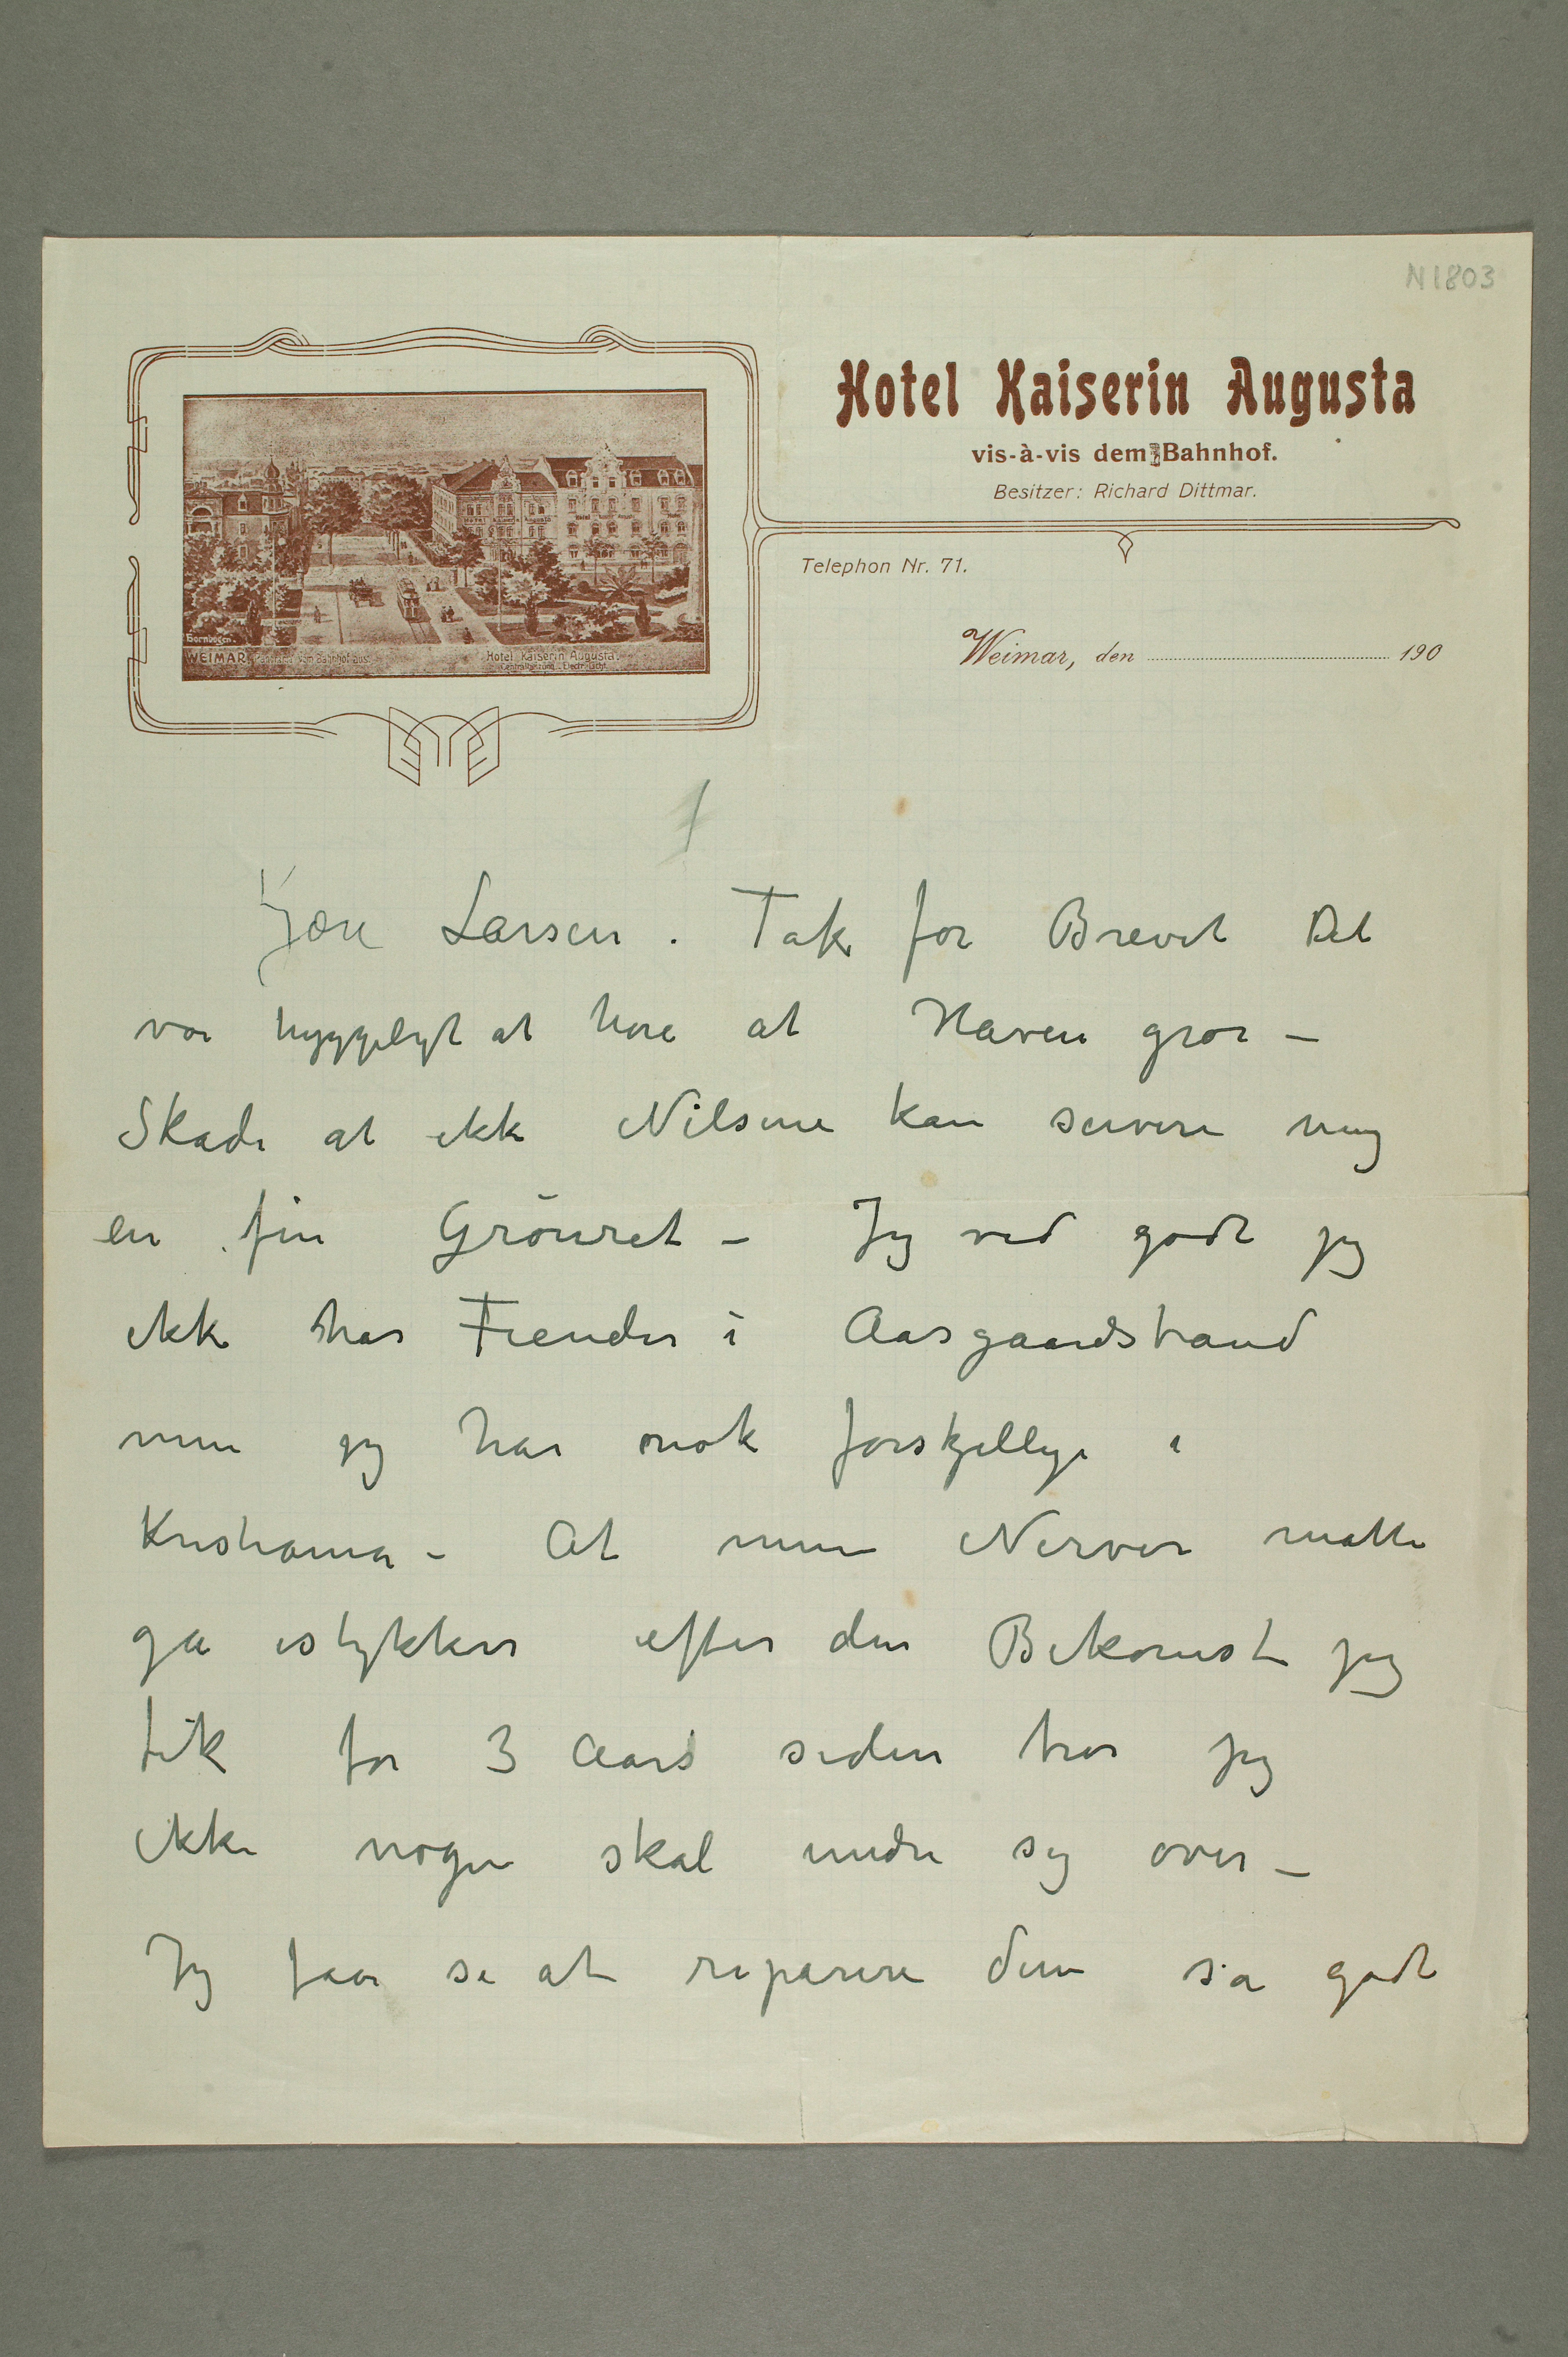 N 1803
Hotel Kaiserin Augusta
vis-à-vis dem Bahnhof.
Besitzer: Richard Dittmar.
Telephon Nr. 71.
Weimar, den 190
Bornbogen.
WEIMAR, Panorama vom Bahnhof aus.
Hotel Kaiserin Augusta.
Centralheizung. Electr. Licht.
1
Kjære Larsen. Tak for Brevet Det
var hyggeligt at høre at Haven gror –
Skade at ikke Nilsene kan servere mig
en fin Grönret – Jeg ved godt jeg
ikke har Fiender i Aasgaardstrand
men jeg har nok forskjellige i
Kristiania – At mine Nerver måtte
gå istykker efter den Bekomst jeg
fik for 3 Aars siden tror jeg
ikke nogen skal undre sig over –
Jeg faar se at reparere dem så godt